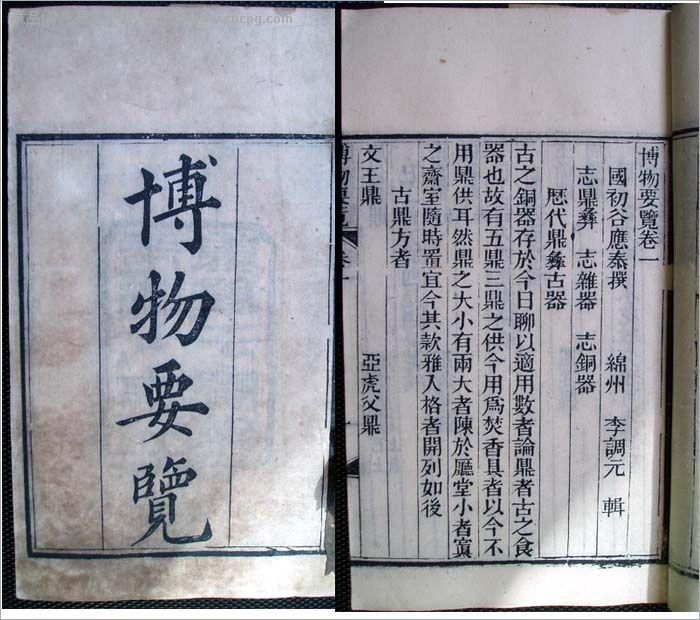 www.cncpg.com
博物要覽
博物要覽卷一
國初谷應泰撰 綿州 李調元 輯
志鼎彝 志雜器 志銅器
歷代鼎彝古器
古之銅器存於今日聊以適用數者論鼎者古之食
器也故有五鼎三鼎之供今用爲焚香具者以今不
用鼎供耳然鼎之大小有兩大者陳於廳堂小者寘
之齋室隨時置宜今其款雅入格者開列如後
古鼎方者
文王鼎 亞虎父鼎
博物要覽 卷一